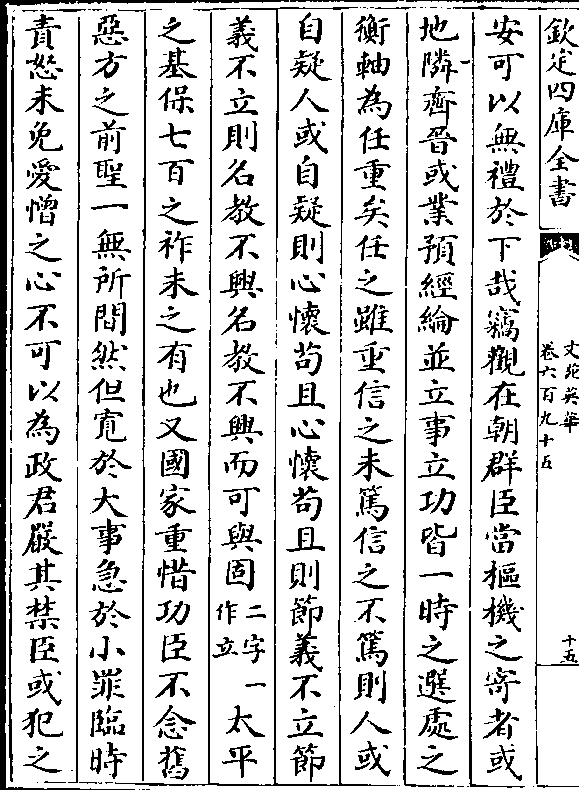 欽定四庫全書
文苑英華
卷六百九十五
十五
安可以無禮於下哉竊觀在朝群臣當樞機之寄者或
地隣齊晉或業預經綸並立事立功皆一時之選處之
衡軸為任重矣任之雖重信之未篤信之不篤則人或
自疑人或自疑則心懷苟且心懷苟且則節義不立節
義不立則名教不興名教不興而可與固二字一作立太平
之基保七百之祚未之有也又國家重惜功臣不念舊
惡方之前聖一無所間然但寛於大事急於小罪臨時
責怒未免愛憎之心不可以為政君嚴其禁臣或犯之